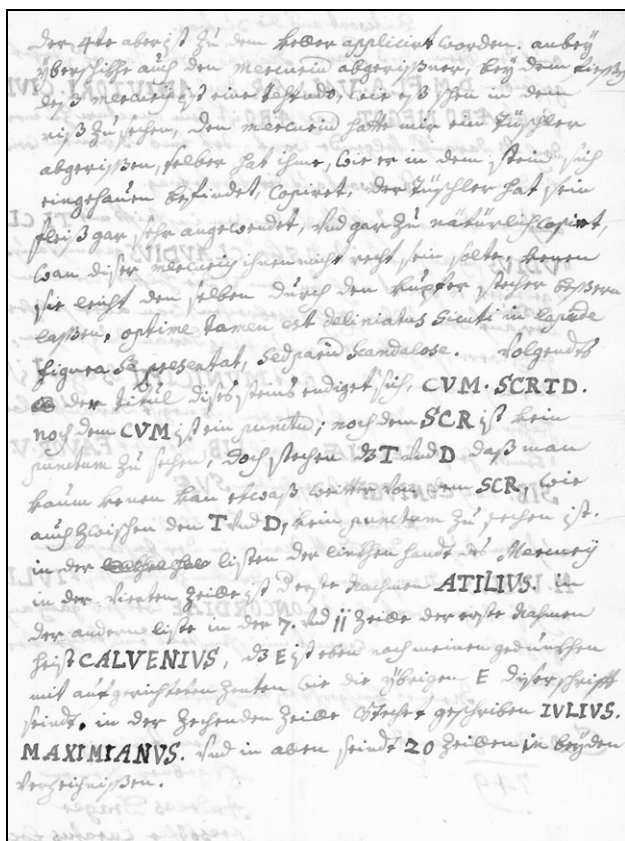 der 4te aber ist zu dem keller applicirt worden. anbey
yberschikhe auch den mercurium abgerißner, bey dem fießen
deß mercurii ist eine testudo, wie eß schen in dem
riß zu sehen, den mercurium hatte mir ein Tüschler
abgerißen, selber hat ihme, wie er in dem stein sich
eingehauen befindet, copiret, der Tüschler hat sein
fleiß gar sehr angewendet, und gar zu nätürlich copirt,
wan diser mercurius ihnen nicht recht sein solte, kenen
sie leicht den selben durch den kupfer stecher beßern
laßen, optime tamen est deliniatus sicuti in lapide
figura se presentat, sed parum scandalose. Volgendts
der titul dises steins endiget sich, CVM. SCRTD.
noch dem CVM ist ein punctum; noch dem SCR ist kein
punctum zu sehen, doch stechen dz T und D daß man
kaum kenen kan etwaß weitter von dem SCR, wie
auch zwischen den T und D, kein punctum zu sehen ist.
in der listen der linkhen handt des Mercurij
in der vierten Zeille ist d erste nahmen ATILIVS. in
der anderen liste in der 7. und 11 Zeille der erste nahmen
heist CALVENIVS, dz E ist eben noch meinen gedünkhen
mit aufgerichteten Zenten wie die ybrigen E diser schrifft
seindt. in der Zechenden Zeille stechet geschriben IVLIVS.
MAXIMIANVS. und in allen seindt 20 Zeillen in beyden
verzeichnißen.